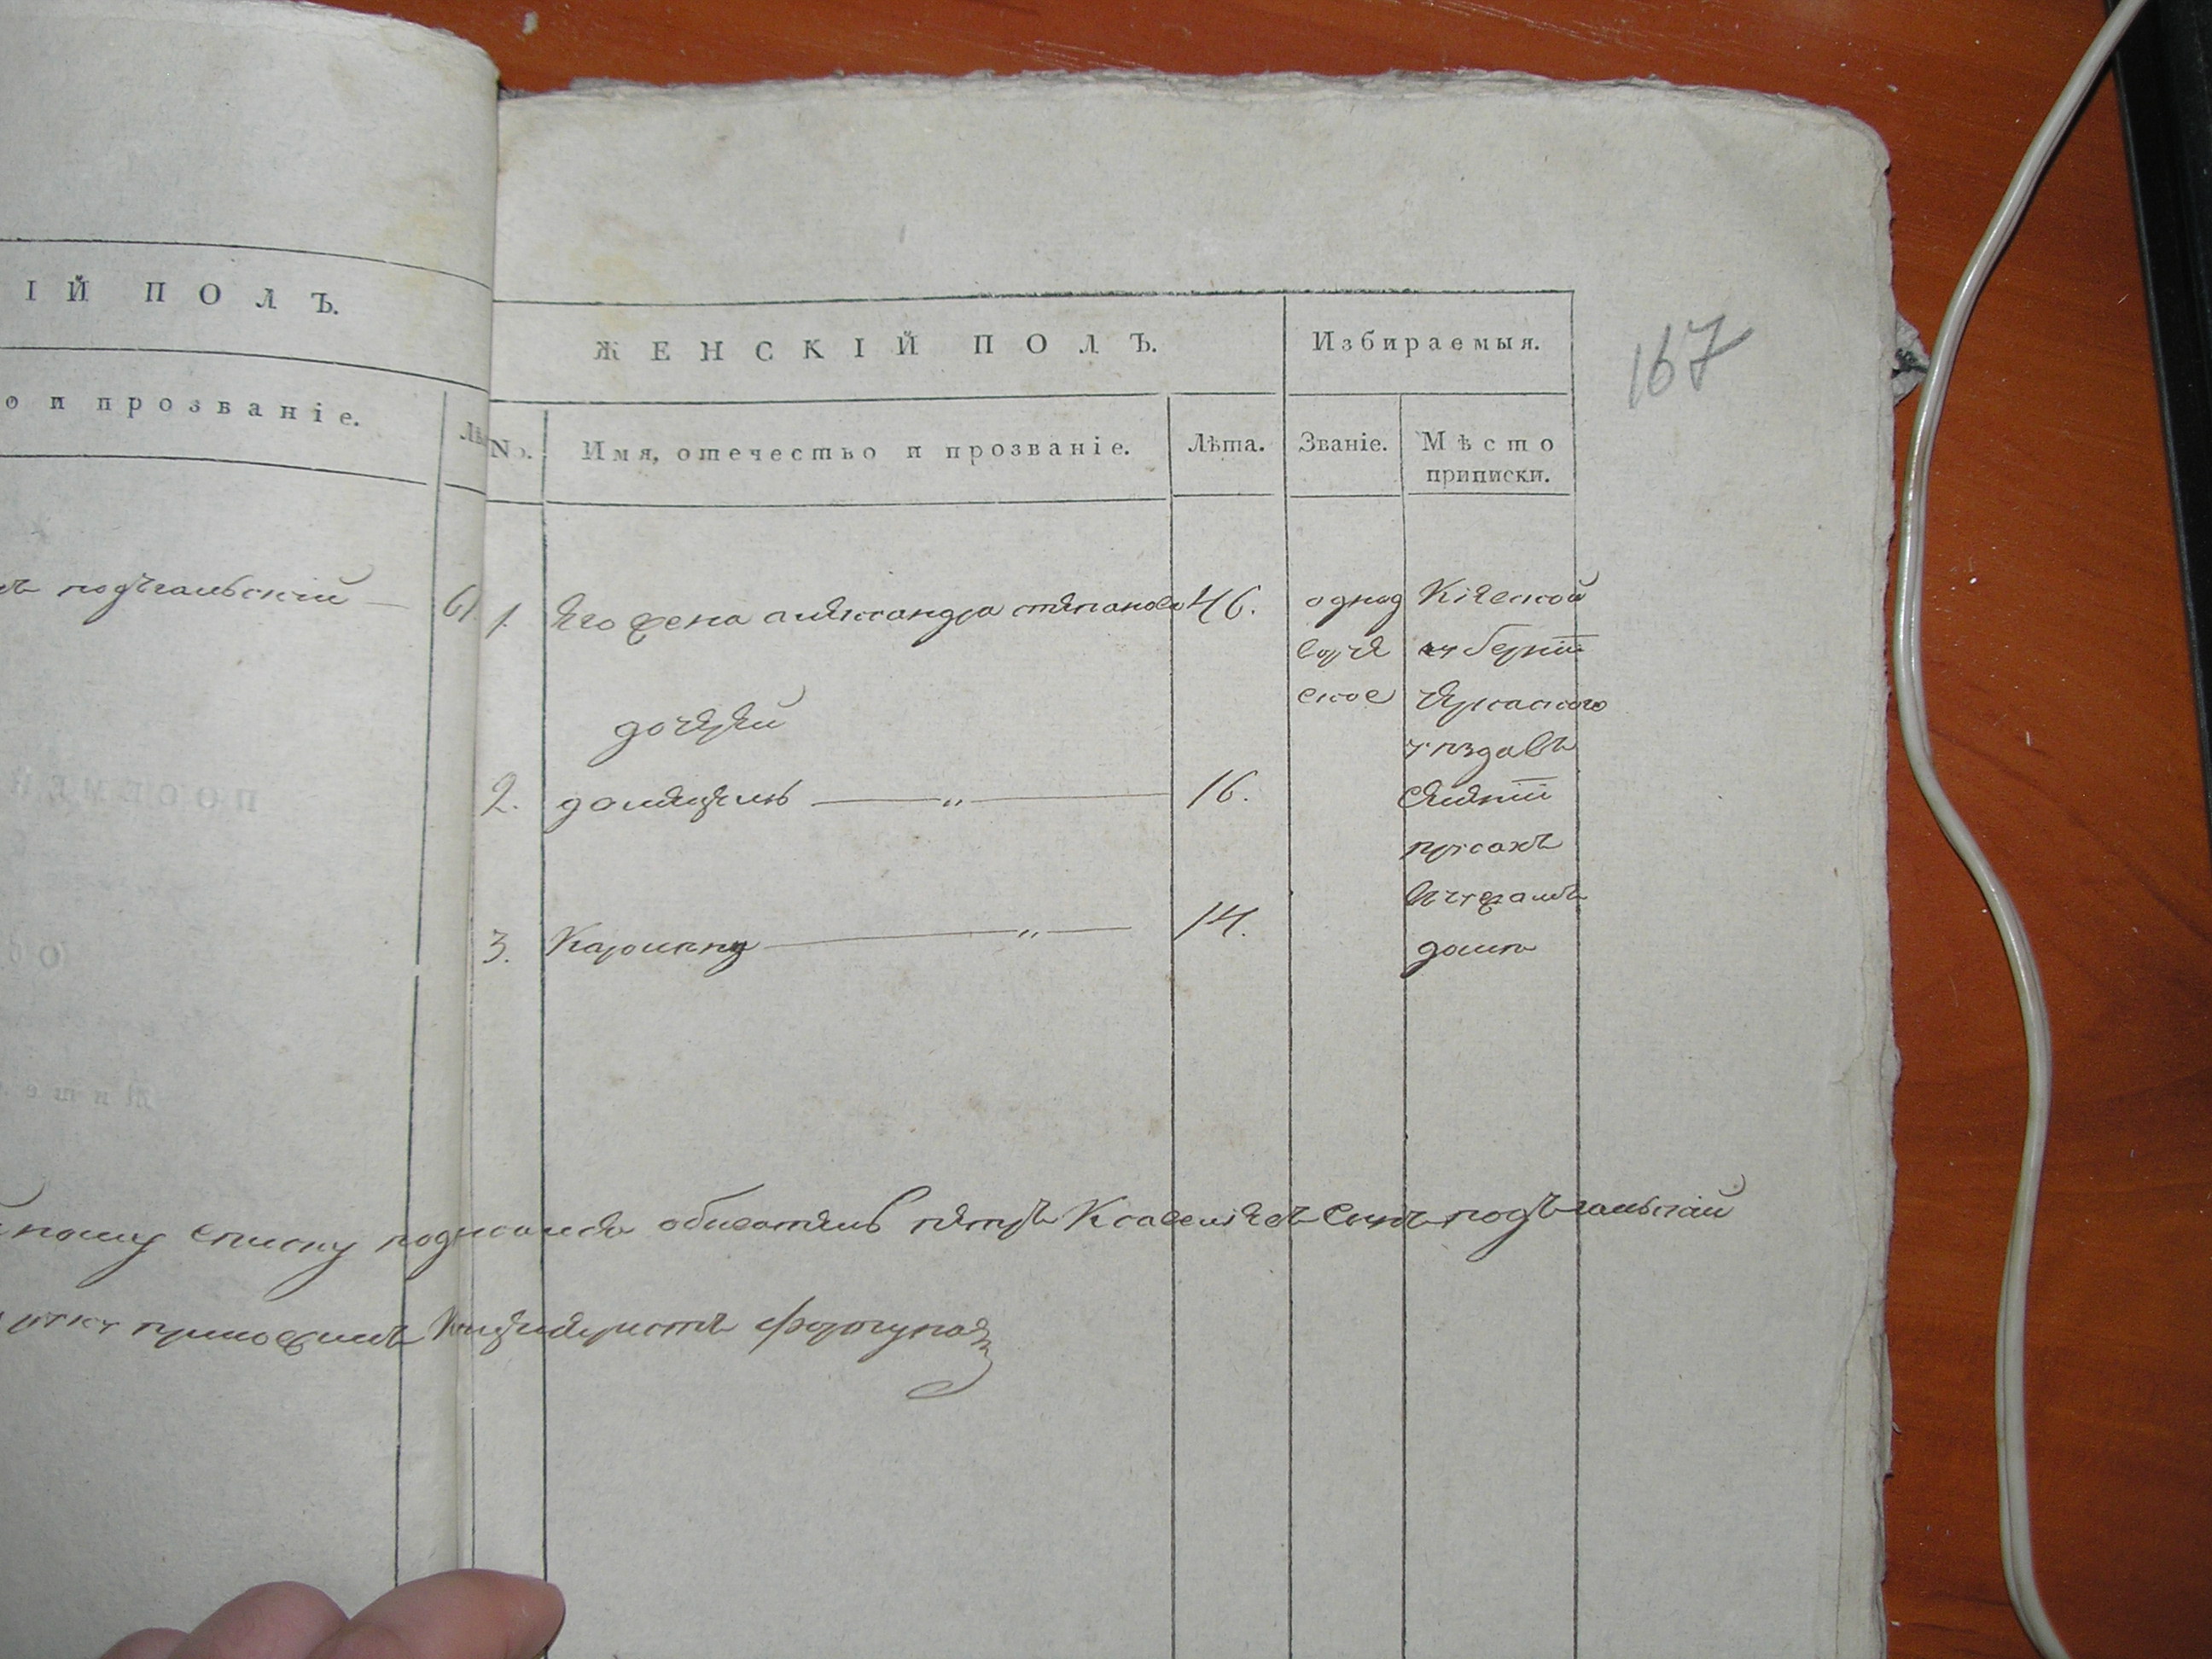 ІЙ ПОЛЪ.
о и прозваніе.
Лѣ
подъгальскій
61.
ЖЕНСКІЙ ПОЛЪ.
Избираемыя.
167
No.
Имя, отечество и прозваніе.
Лѣта.
Званіе.
Мѣсто
приписки.
1. Его жена александра степанова 46.
однод
ворче
ское
Кіевской
губерніи
черкаского
уѣзда въ
селеніи
русахъ
дочери
2. домицеля — „ — 16.
3. Каролину — „ — 14.
домѣ
списку подписался обыватель петръ Ксавеліевъ сынъ подъгальскій
приложилъ Канцеляристъ